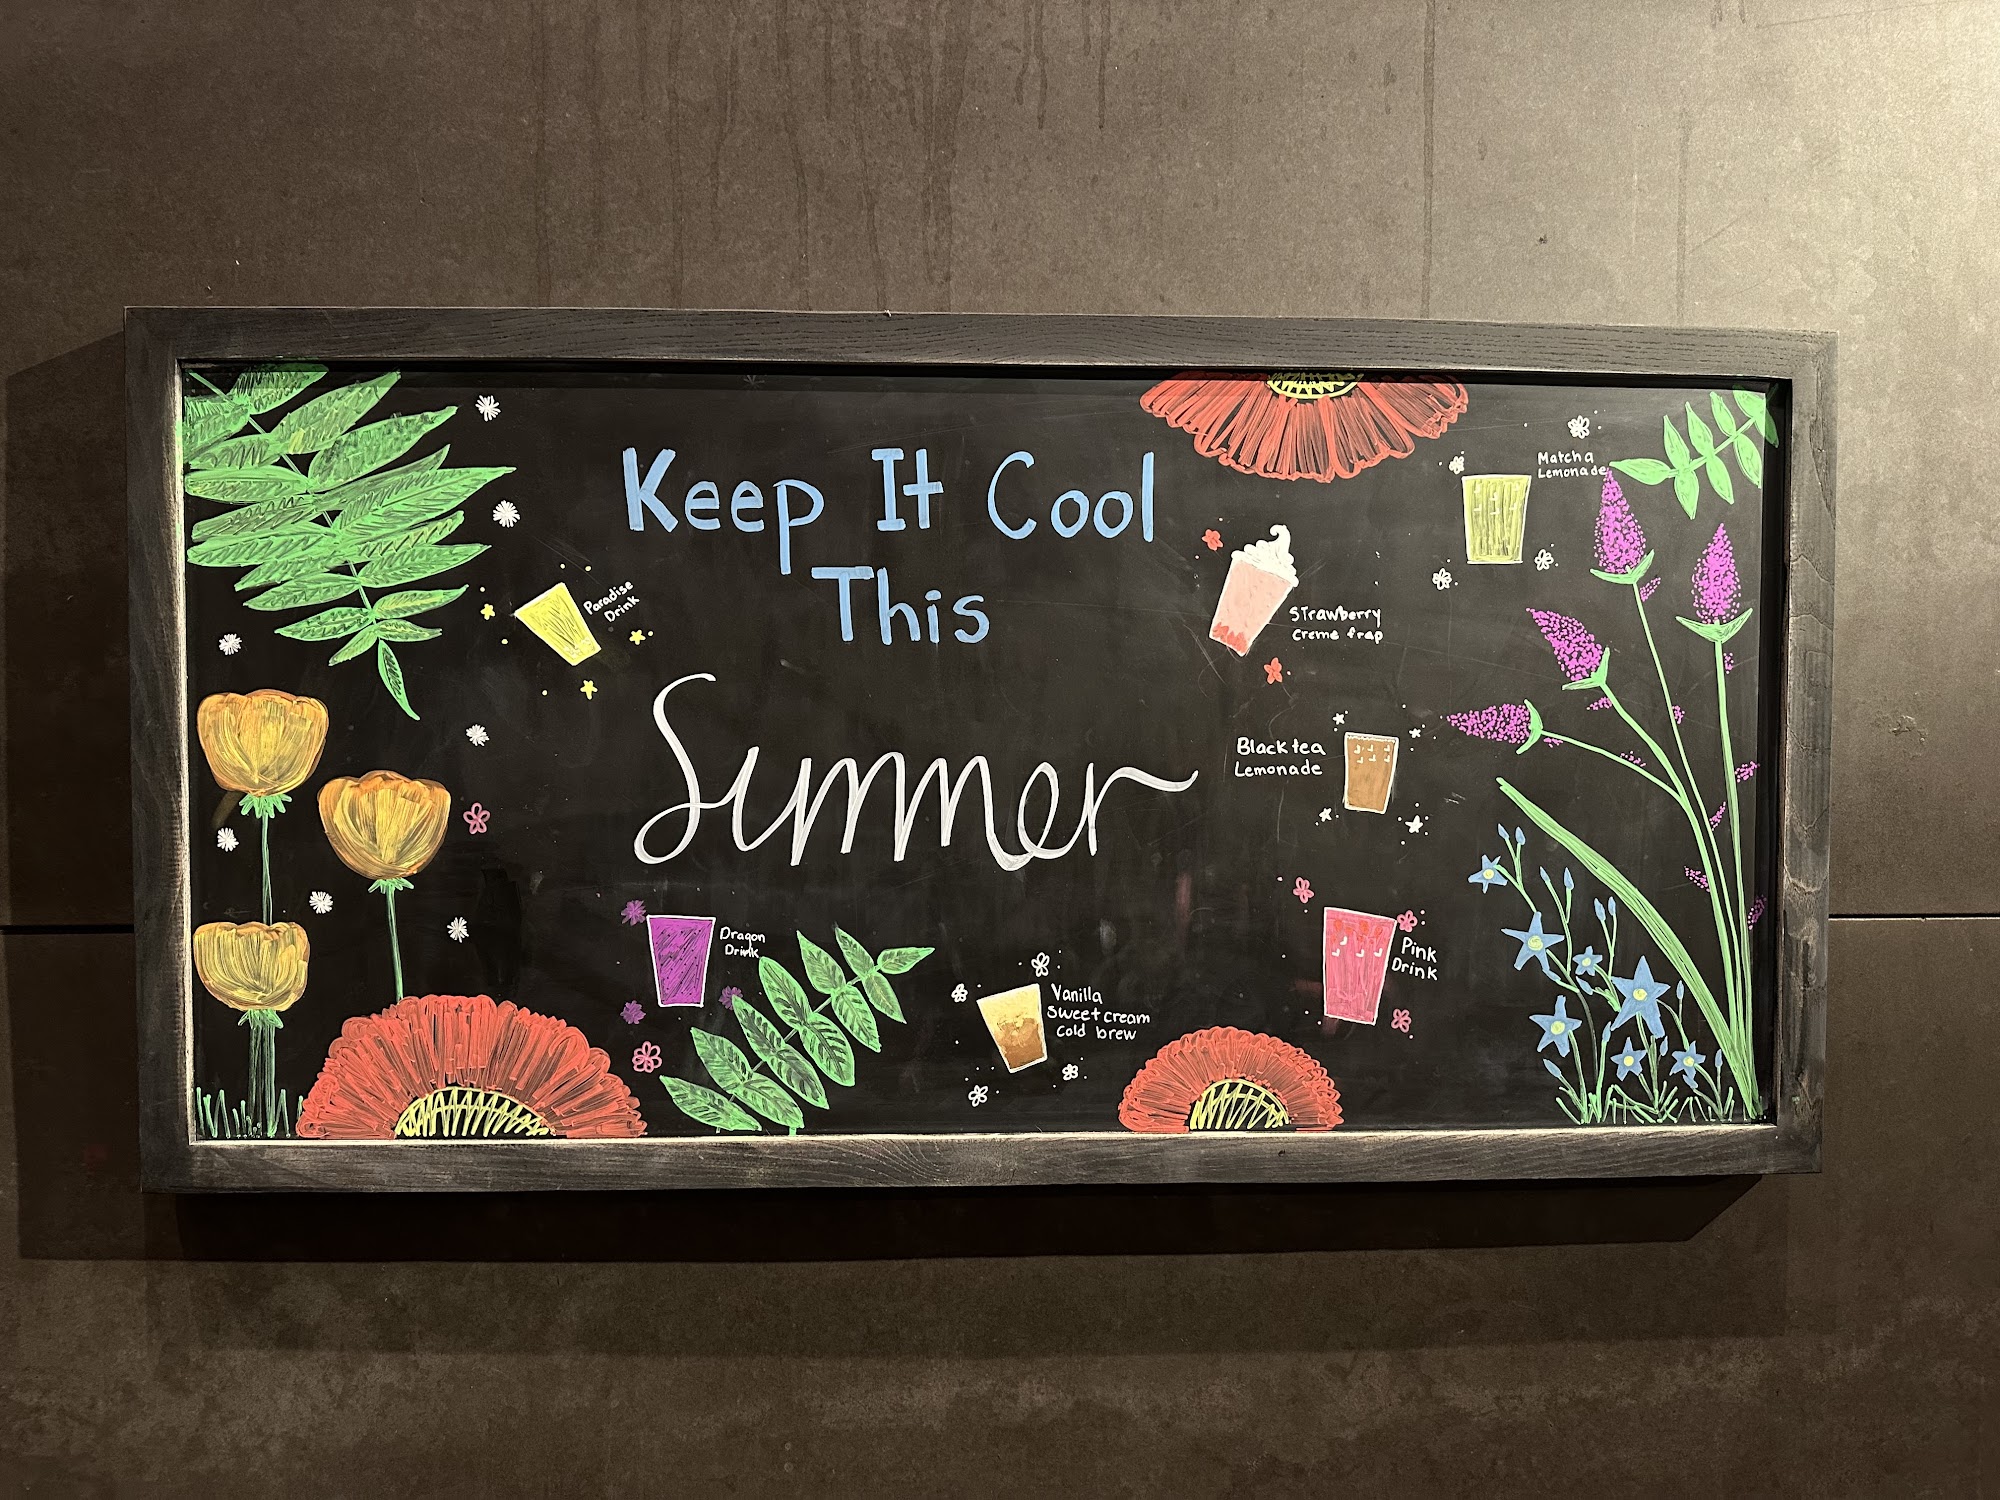 Keep It Cool
This
Summer
Paradise
Drink
Matcha
Lemonade
Strawberry
Creme frap
Black tea
Lemonade
Dragon
Drink
Vanilla
Sweet cream
Cold brew
Pink
Drink